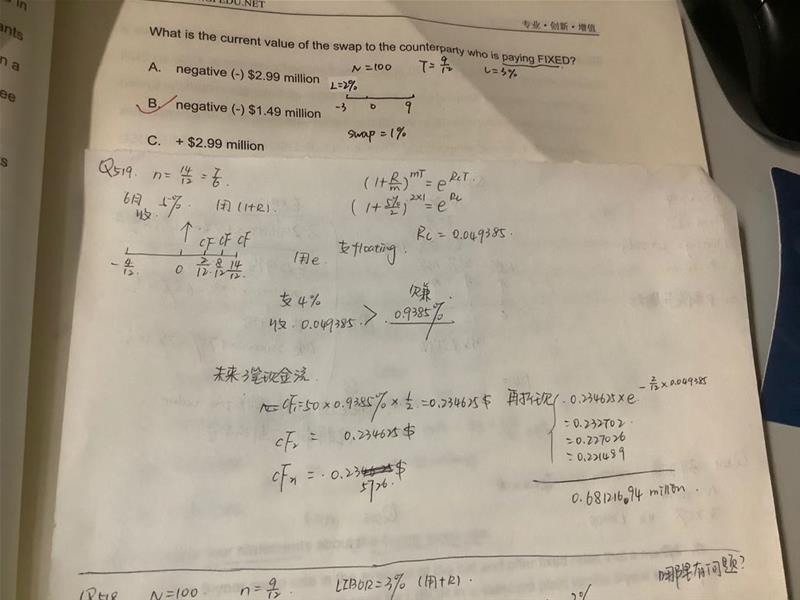 EDU.NET
专业·创新·增值
What is the current value of the swap to the counterparty who is paying FIXED?
N=100 T=9/12 L=3%
A. negative (-) $2.99 million
L=2%
B. negative (-) $1.49 million
-3 0 9
C. + $2.99 million
swap=1%
Q519. n=14/12=7/6.
(1+R/m)^mT=e^RcT.
6月收 5% 用(1+R).
(1+5%/2)^2×1=e^Rc
Rc=0.049385.
CF CF CF
用e 支floating.
-4/12 0 2/12 8/12 14/12
支4%
收.0.049385. > 0.9385%
未来3笔现金流
CF₁=50×0.9385%×1/2=0.234625$ 再折现 0.234625×e^-2/12×0.049385
=0.232702.
CF₂= 0.234625$
=0.227026
=0.221489
5726.
0.681216.94 million.
哪里有问题?
N=100 n=9/12 LIBOR=3% (用+R).
2%
in
ants
n a
ee
s